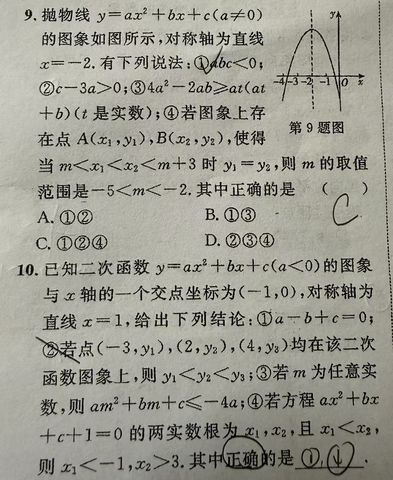 9. 抛物线 y=ax²+bx+c(a≠0)
的图象如图所示,对称轴为直线
x=-2. 有下列说法:①abc<0;
②c-3a>0;③4a²-2ab≥at(at
+b)(t 是实数);④若图象上存
在点 A(x₁,y₁),B(x₂,y₂),使得
当 m<x₁<x₂<m+3 时 y₁=y₂,则 m 的取值
范围是-5<m<-2. 其中正确的是 ( )
C
A. ①② B. ①③
C. ①②④ D. ②③④
y
-4 -3 -2 -1 O x
第 9 题图
10. 已知二次函数 y=ax²+bx+c(a<0)的图象
与 x 轴的一个交点坐标为(-1,0),对称轴为
直线 x=1,给出下列结论:①a-b+c=0;
②若点(-3,y₁),(2,y₂),(4,y₃)均在该二次
函数图象上,则 y₁<y₂<y₃;③若 m 为任意实
数,则 am²+bm+c≤-4a;④若方程 ax²+bx
+c+1=0 的两实数根为 x₁,x₂,且 x₁<x₂,
则 x₁<-1,x₂>3. 其中正确的是 ①